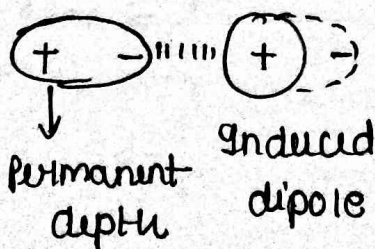 + - + -
Permanent
depth
Induced
dipole